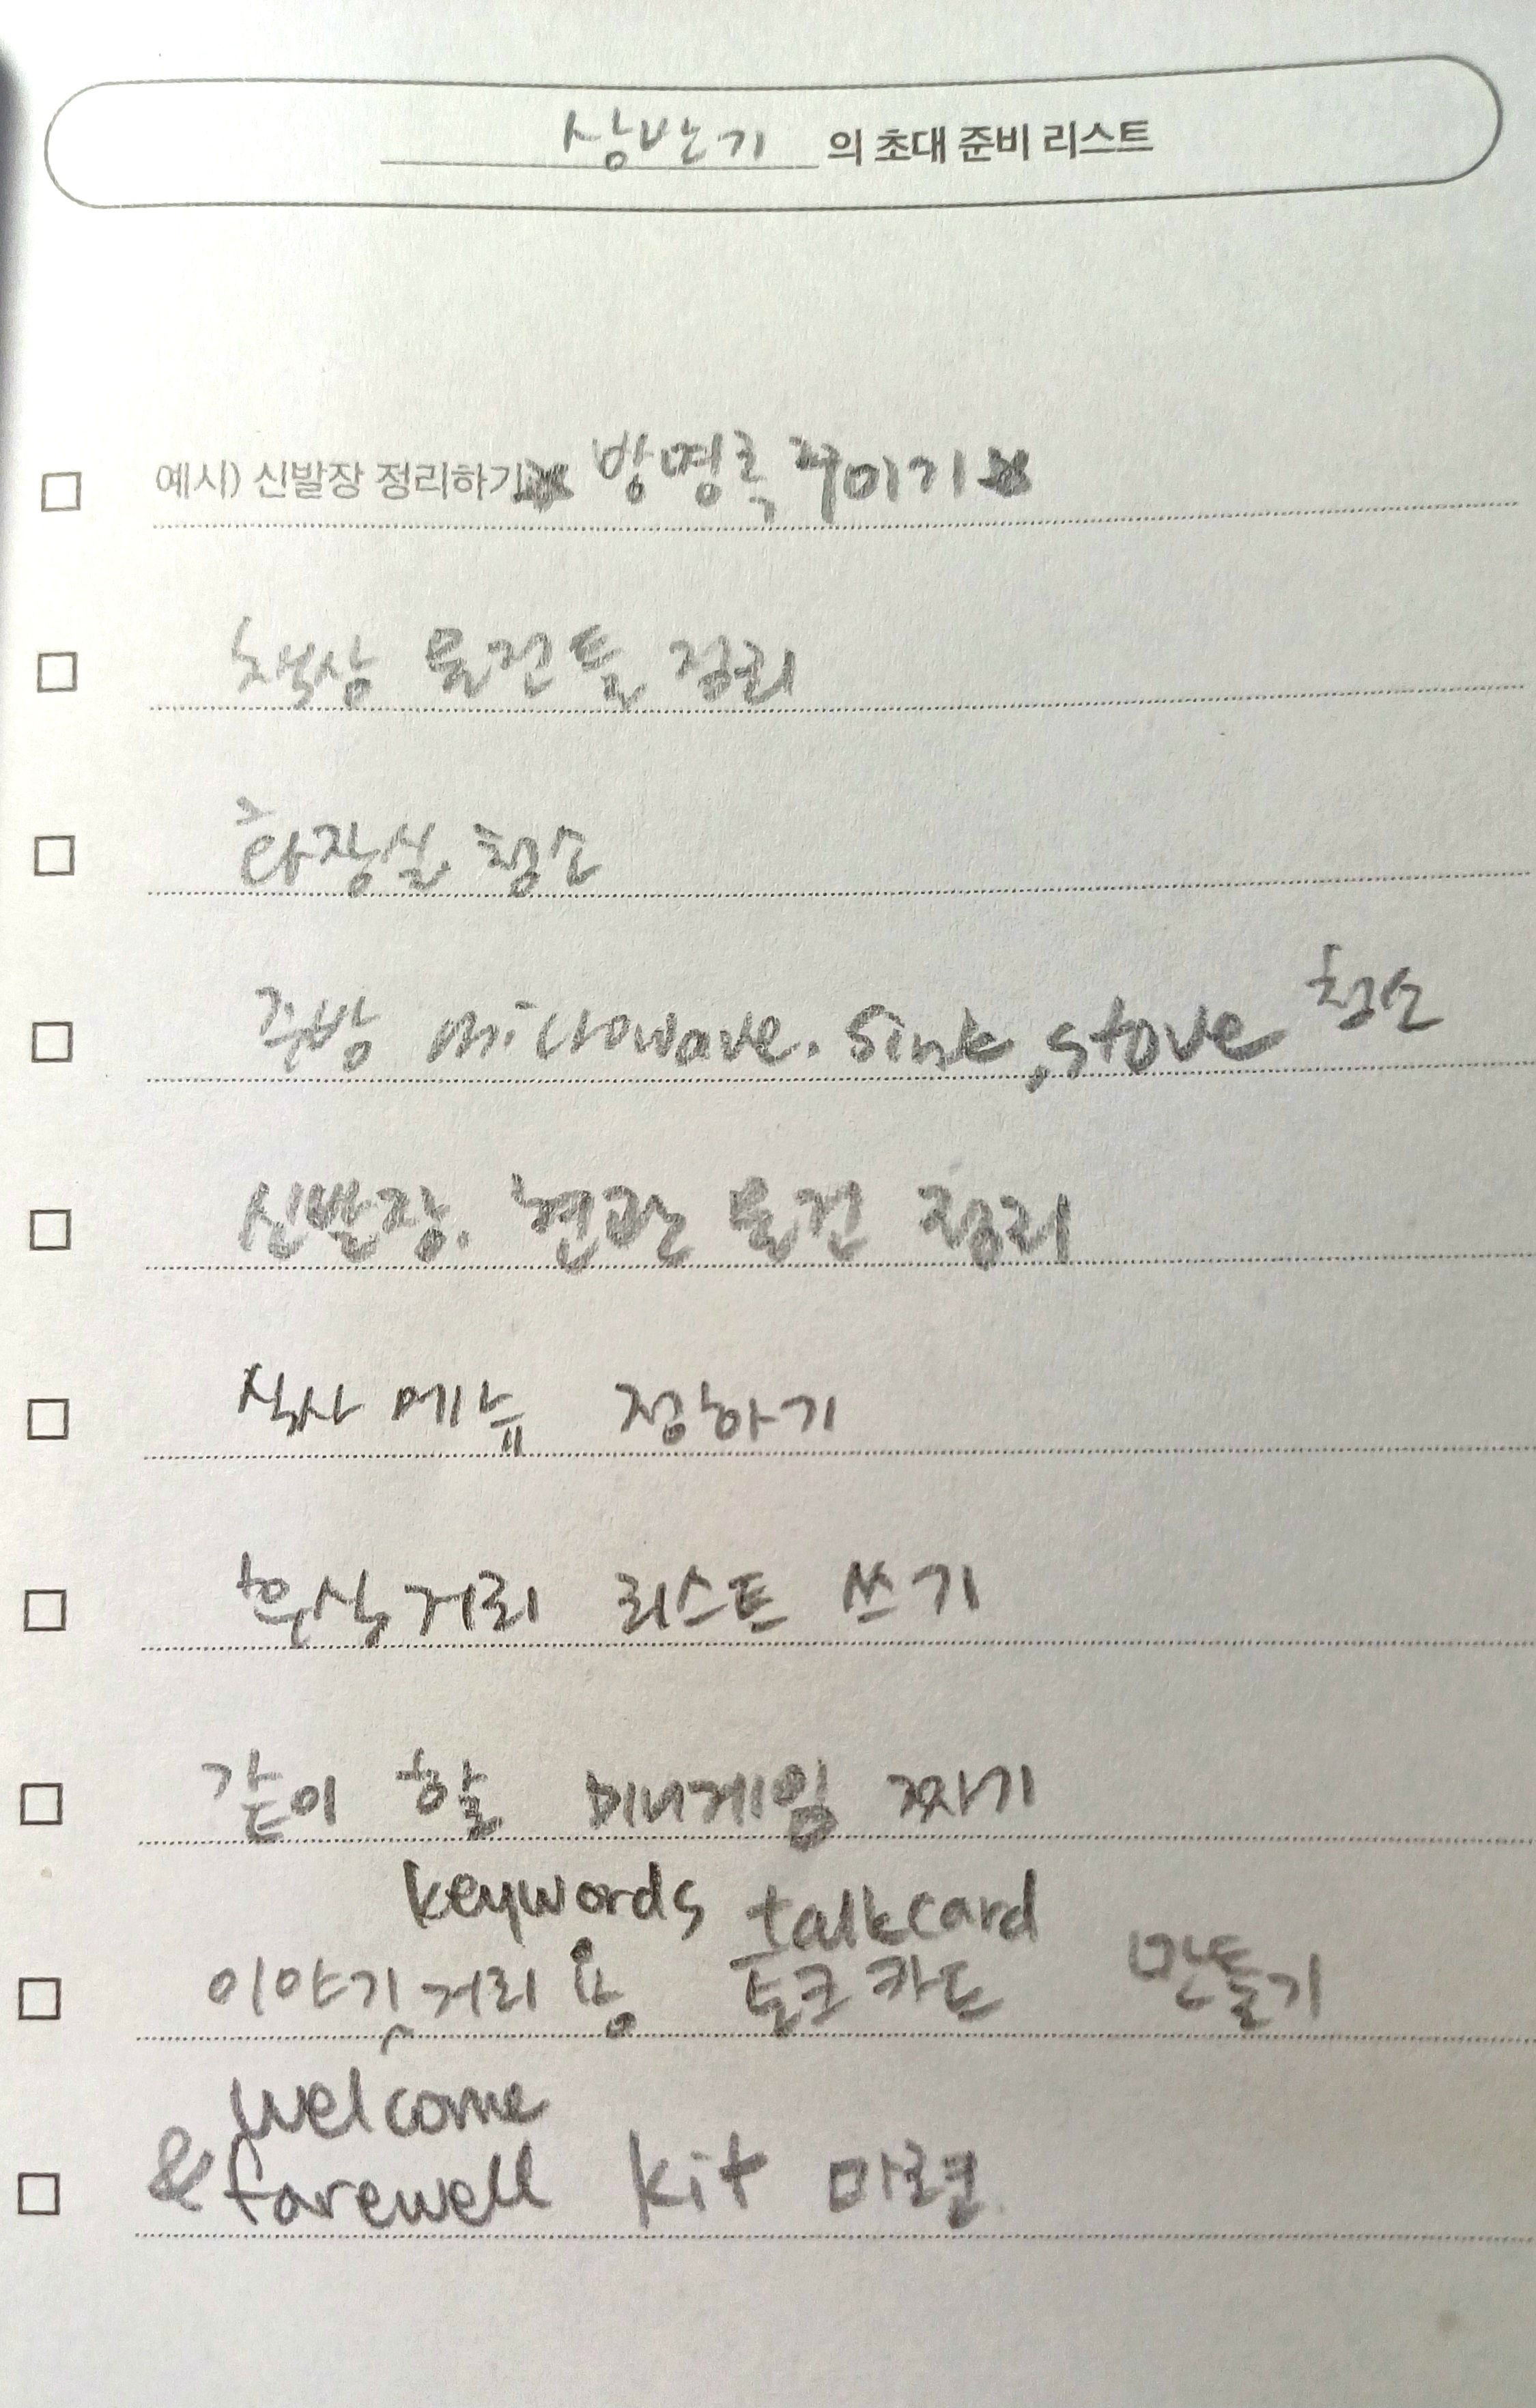 상반기 의 초대 준비 리스트
예시) 신발장 정리하기 방명록 꾸미기
책상 물건들 정리
화장실 청소
주방 microwave. sink, stove 청소
신발장. 현관 물건 정리
식사 메뉴 정하기
후식거리 리스트 쓰기
같이 할 미니게임 짜기
keywords talkcard
이야기거리용 토크카드 만들기
welcome
& farewell kit 마련